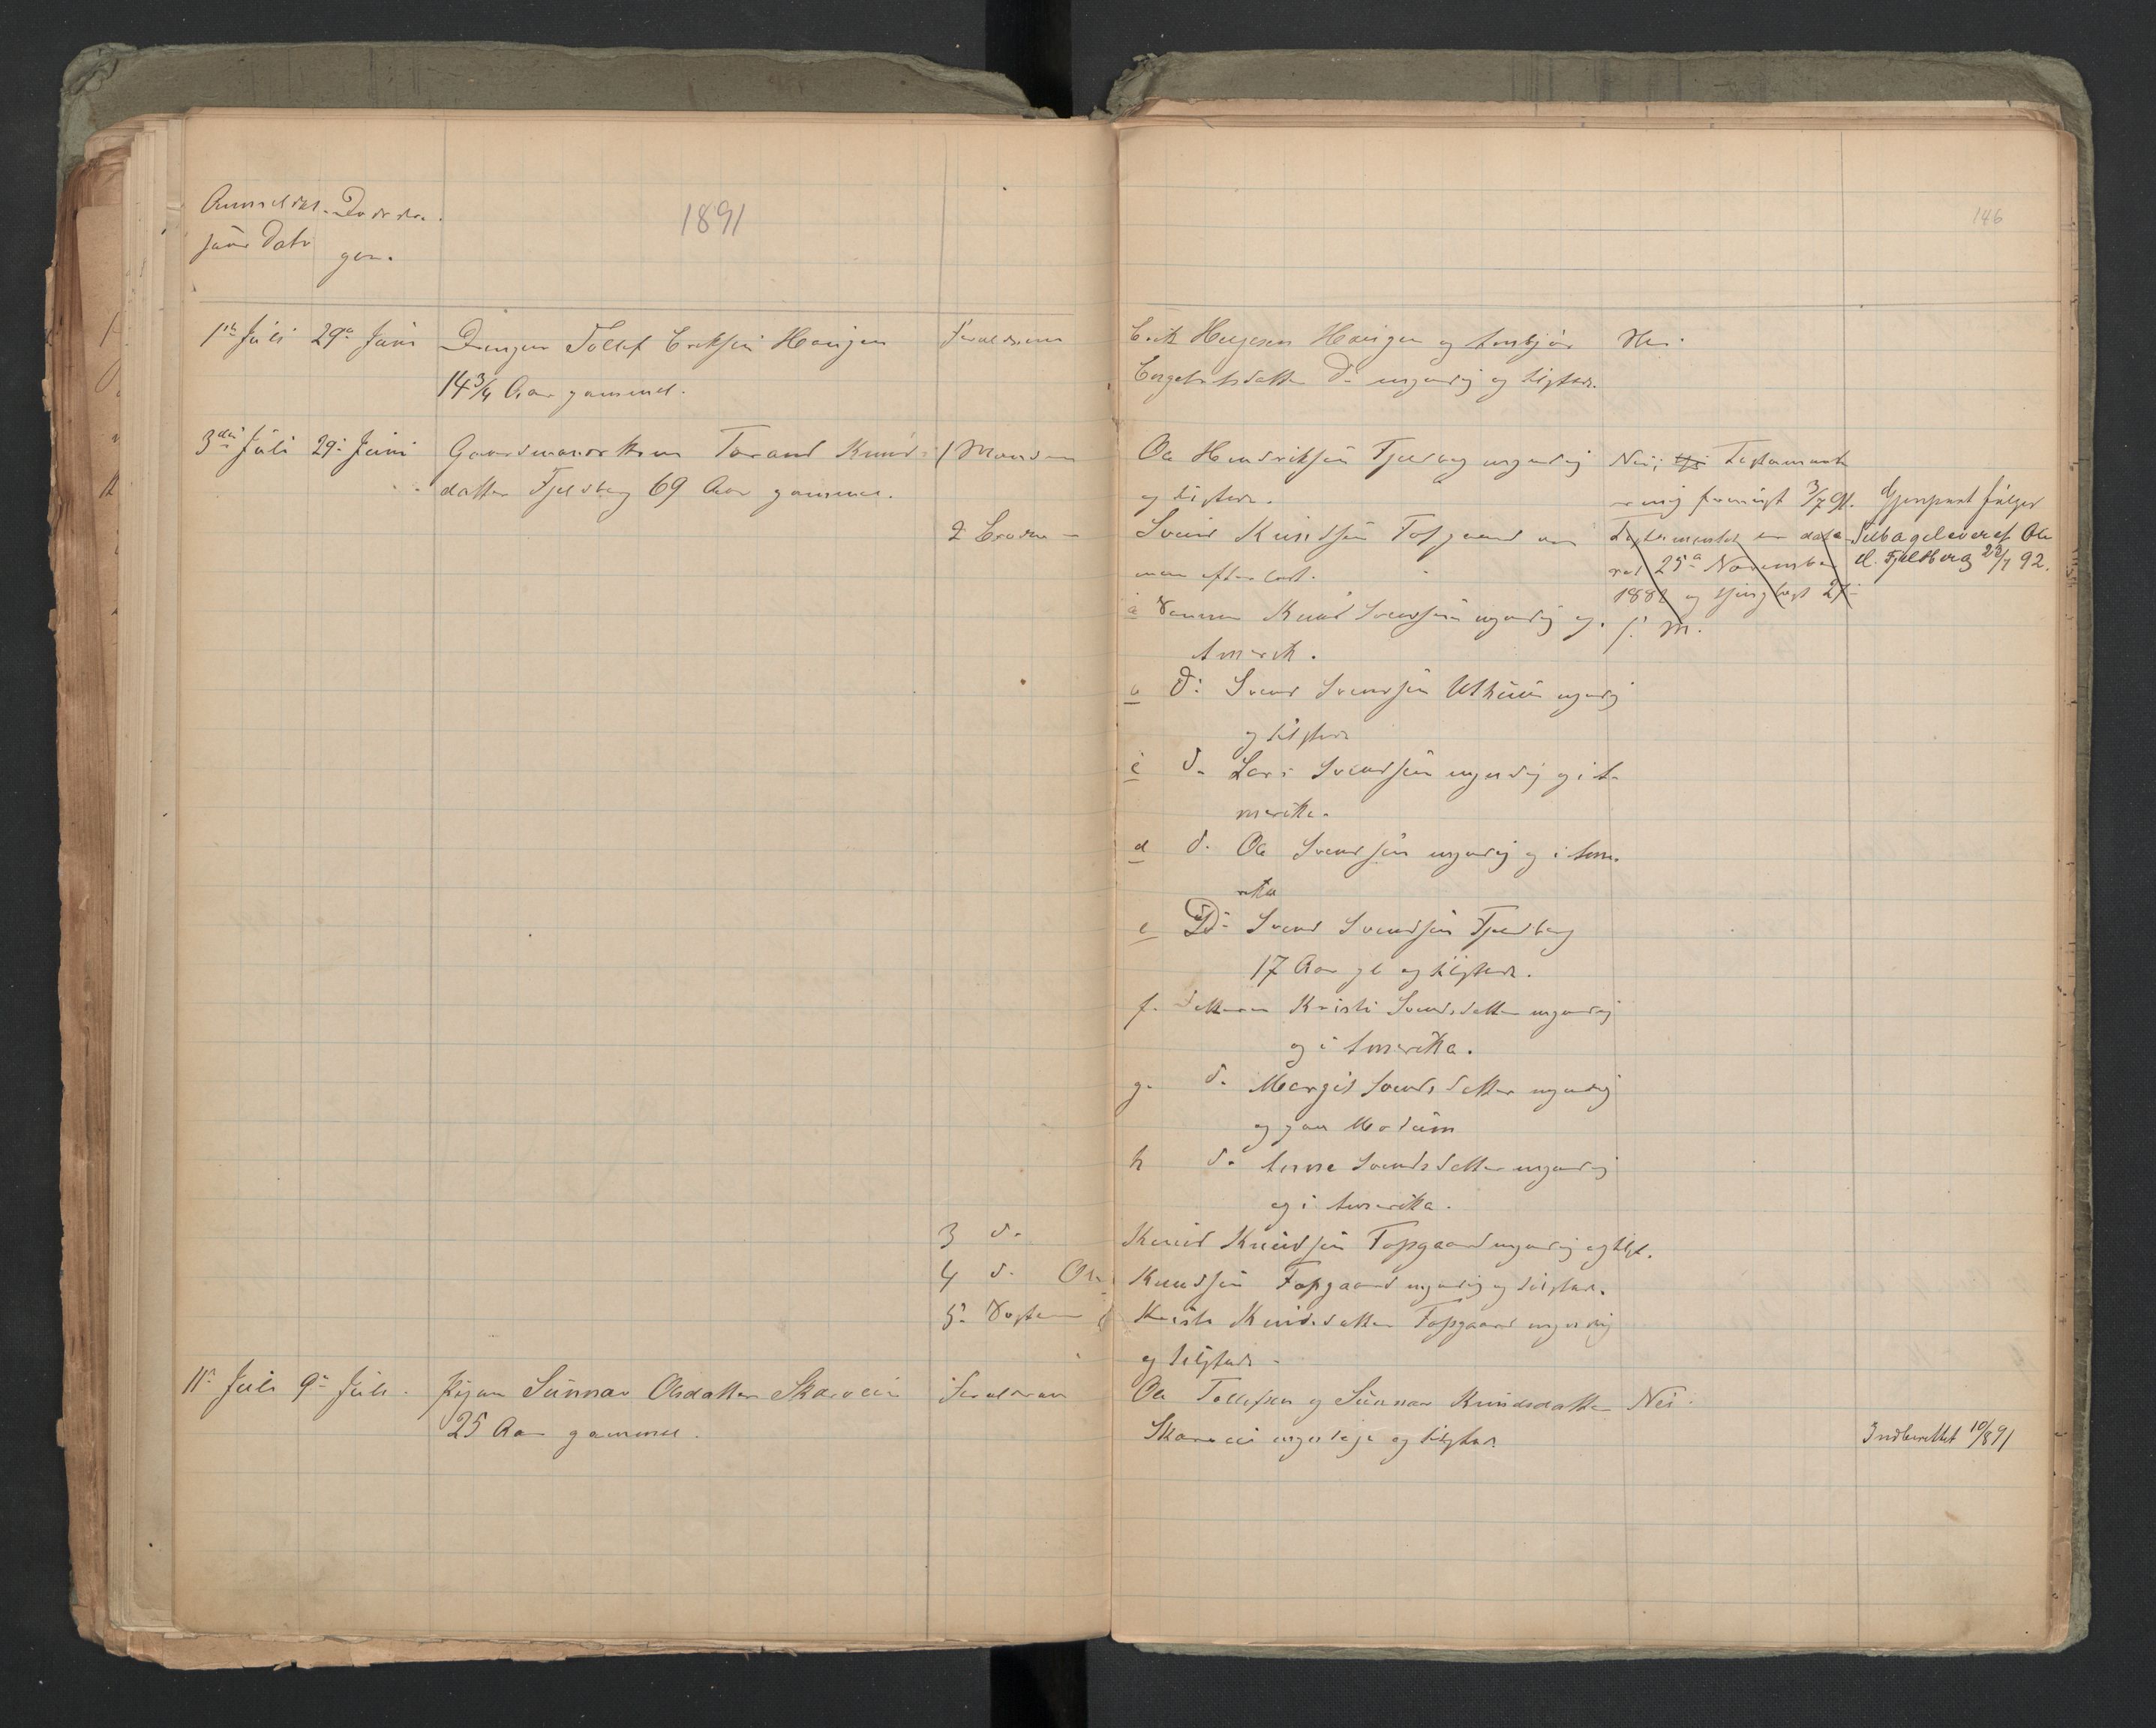 Anmeldel. Dødsda.
sens Dato gen.
1891
146
1ste Juli 29de Juni Drengen Tollef Eriksen Haugen Forældrene
14 3/4 Aar gammel.
Erik Helgesen Haugen og Ambjør Nei.
Engebretsdatter do myndig og tilstede.
3die Juli 29de Juni Gaardmandskone Torand Knuds- 1 Manden
datter Fjeldberg 69 Aar gammel.
Ole Hendriksen Fjeldberg myndig
og tilstede.
Nei; Testamente
er mig fremlagt 3/7 91.
Testamentet er date-
ret 25de November
188 og thinglyst 27de
s. M.
Gjenpart følger
Tilbageleveret Ole
H. Fjeldberg 23/7 92.
2 Broder
Svend Knudsen Fossgaard som
men efterladt.
a Sønnen Knud Svendsen myndig og i
Amerik.
b do Svend Svendsen Uthuus myndig
og tilstede
c do Lars Svendsen myndig og i A-
merika.
d do Ole Svendsen myndig og i Ame-
rika
e Do Svend Svendsen Fjeldberg
17 Aar gl og tilstede.
f. Datteren Kristi Svendsdatter myndig
og i Amerika.
g. do Margit Svendsdatter myndig
og paa Modum
h do Anne Svendsdatter myndig
og i Amerika.
3 do Knud Knudsen Fossgaard myndig og tilst.
4 do Ole Knudsen Fossgaard myndig og tilstede.
5. Søster Kristi Knudsdatter Fossgaard myndig
og tilstede.
11te Juli 9de Juli. Pigen Sünnav Olsdatter Skarvei Forældrene
25 Aar gammel.
Ole Tollefsen og Sünnav Knudsdatter Nei.
Skarvei myndige og tilstede
Indberettet 10/8 91